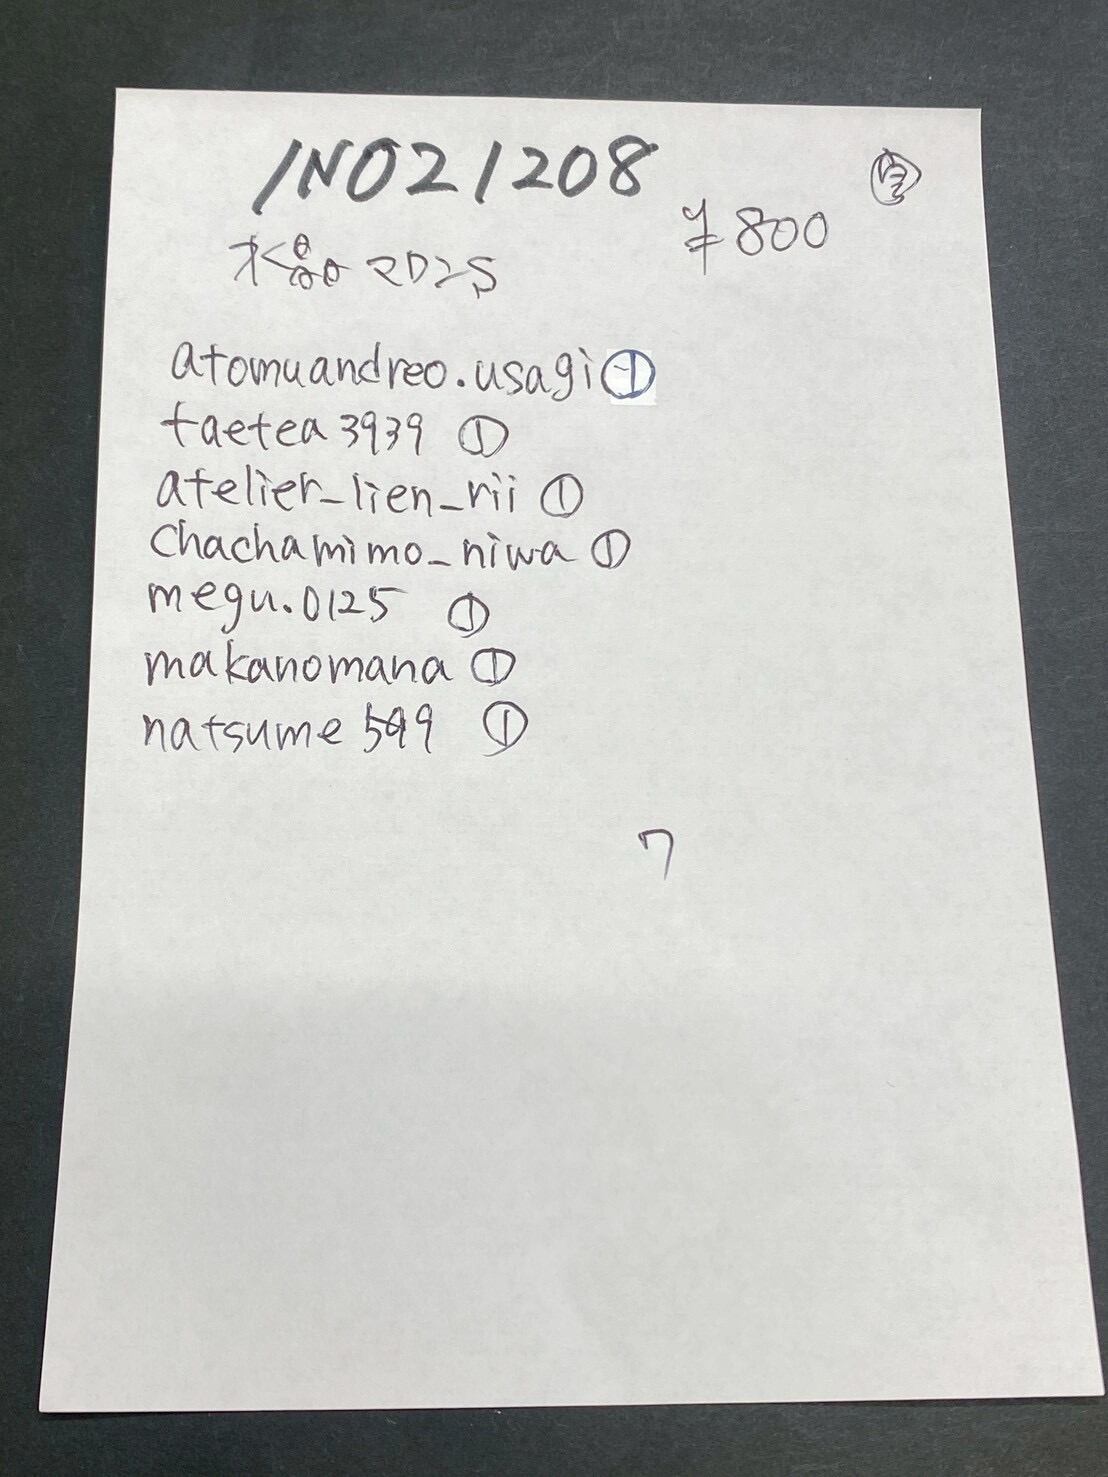 INO21208
¥800
水晶 マロンS
atomuandreo.usagi ①
taetea3939 ①
atelier_lien_rii ①
chachamimo_niwa ①
megu.0125 ①
makanomana ①
natsume599 ①
7